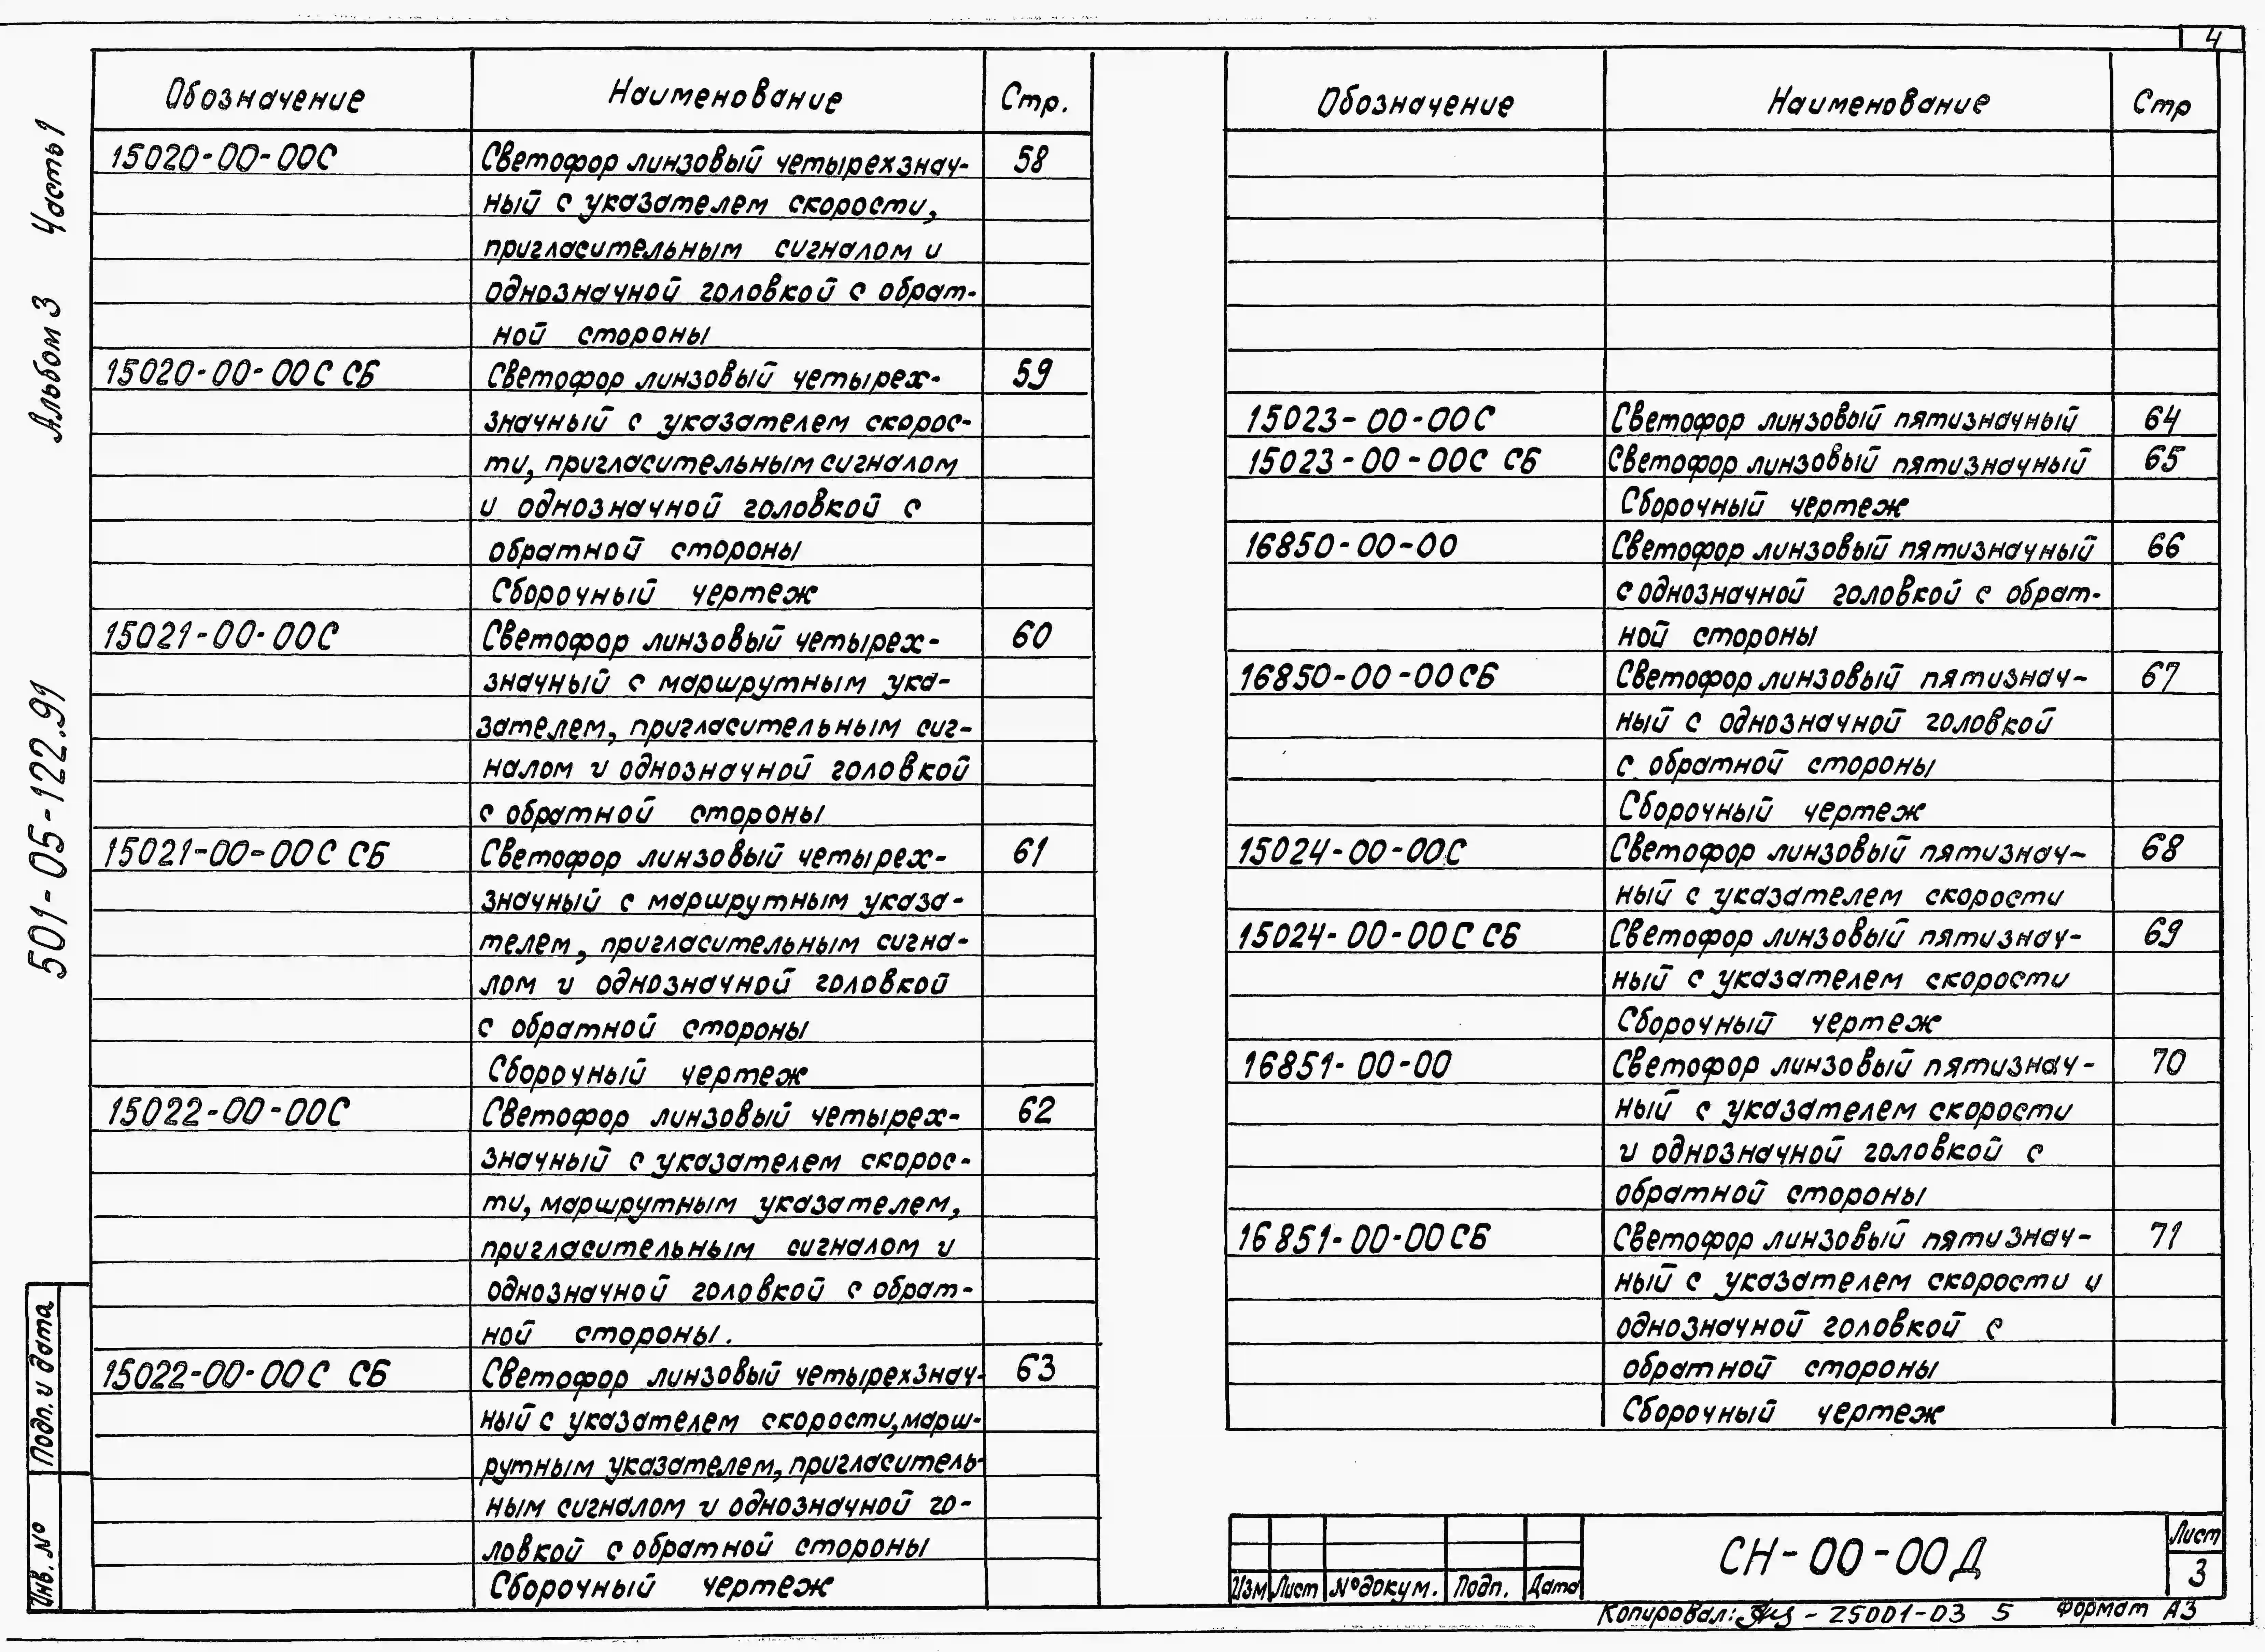 4
Альбом 3 Часть 1
501-05-122.91
Подп. и дата
Инв. №
Обозначение Наименование Стр.
15020-00-00С Светофор линзовый четырехзнач- 58
ный с указателем скорости,
пригласительным сигналом и
однозначной головкой с обрат-
ной стороны
15020-00-00С СБ Светофор линзовый четырех- 59
значный с указателем скорос-
ти, пригласительным сигналом
и однозначной головкой с
обратной стороны
Сборочный чертеж
15021-00-00С Светофор линзовый четырех- 60
значный с маршрутным ука-
зателем, пригласительным сиг-
налом и однозначной головкой
с обратной стороны
15021-00-00С СБ Светофор линзовый четырех- 61
значный с маршрутным указа-
телем, пригласительным сигна-
лом и однозначной головкой
с обратной стороны
Сборочный чертеж
15022-00-00С Светофор линзовый четырех- 62
значный с указателем скорос-
ти, маршрутным указателем,
пригласительным сигналом и
однозначной головкой с обрат-
ной стороны.
15022-00-00С СБ Светофор линзовый четырехзнач- 63
ный с указателем скорости, марш-
рутным указателем, пригласитель-
ным сигналом и однозначной го-
ловкой с обратной стороны
Сборочный чертеж
Обозначение Наименование Стр
15023-00-00С Светофор линзовый пятизначный 64
15023-00-00С СБ Светофор линзовый пятизначный 65
Сборочный чертеж
16850-00-00 Светофор линзовый пятизначный 66
с однозначной головкой с обрат-
ной стороны
16850-00-00СБ Светофор линзовый пятизнач- 67
ный с однозначной головкой
с обратной стороны
Сборочный чертеж
15024-00-00С Светофор линзовый пятизнач- 68
ный с указателем скорости
15024-00-00С СБ Светофор линзовый пятизнач- 69
ный с указателем скорости
Сборочный чертеж
16851-00-00 Светофор линзовый пятизнач- 70
ный с указателем скорости
и однозначной головкой с
обратной стороны
16851-00-00СБ Светофор линзовый пятизнач- 71
ный с указателем скорости и
однозначной головкой с
обратной стороны
Сборочный чертеж
Изм Лист №докум. Подп. Дата
СН-00-00Д
Лист
3
Копировал: - 25001-03 5 Формат А3